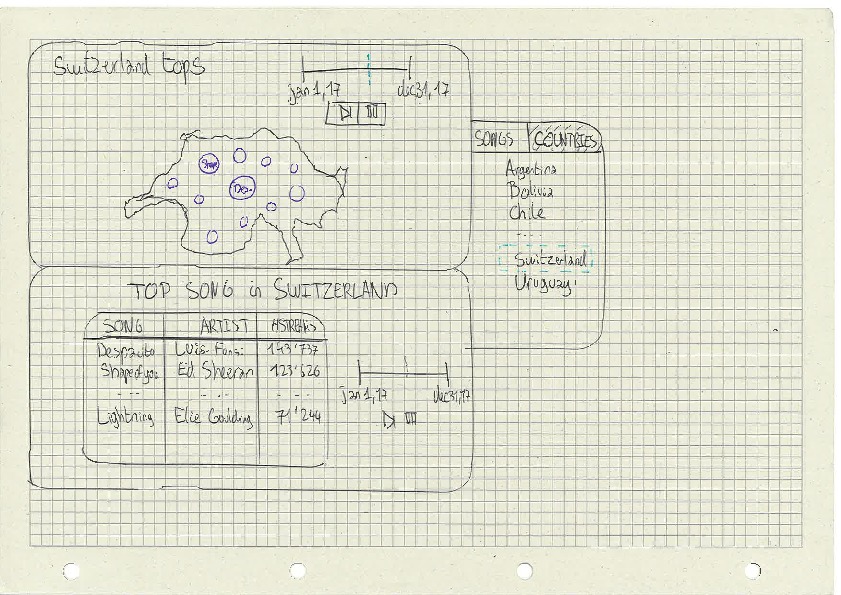 Switzerland tops
jan 1, 17 dec 31, 17
SONGS COUNTRIES
Argentina
Bolivia
Chile
----
Switzerland
Uruguay
Shape
Desp.
TOP SONG in SWITZERLAND
SONG ARTIST #STREAMS
Despacito Luis Fonsi 143'737
Shape of you Ed Sheeran 123'626
--- --- ---
Lightning Elie Goulding 71'244
jan 1, 17 dec 31, 17